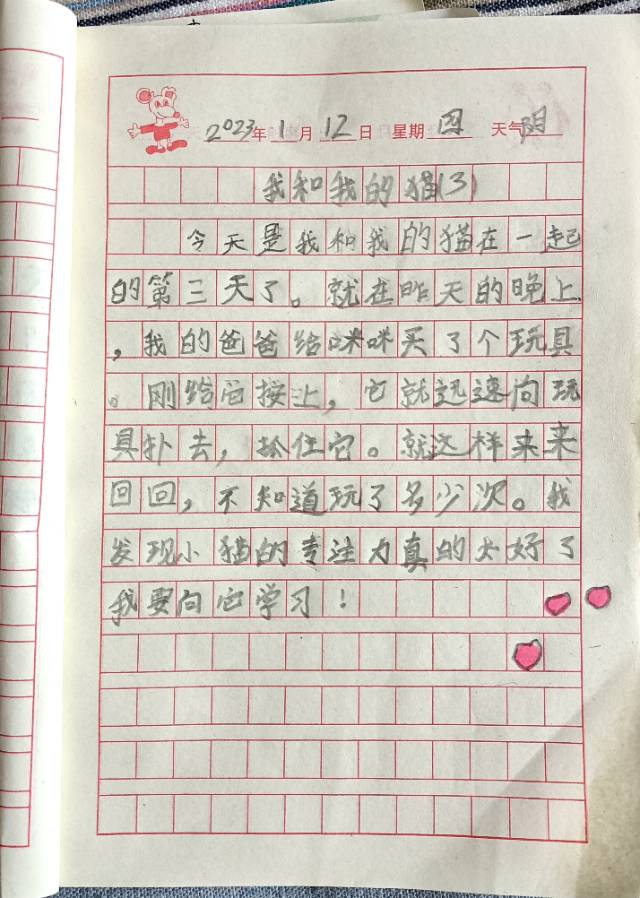 2023年1月12日 星期四 天气阴
我和我的猫(3)
今天是我和我的猫在一起
的第三天了。就在昨天的晚上
，我的爸爸给咪咪买了个玩具
。刚给它按上，它就迅速向玩
具扑去，抓住它。就这样来来
回回，不知道玩了多少次。我
发现小猫的专注力真的太好了
我要向它学习！